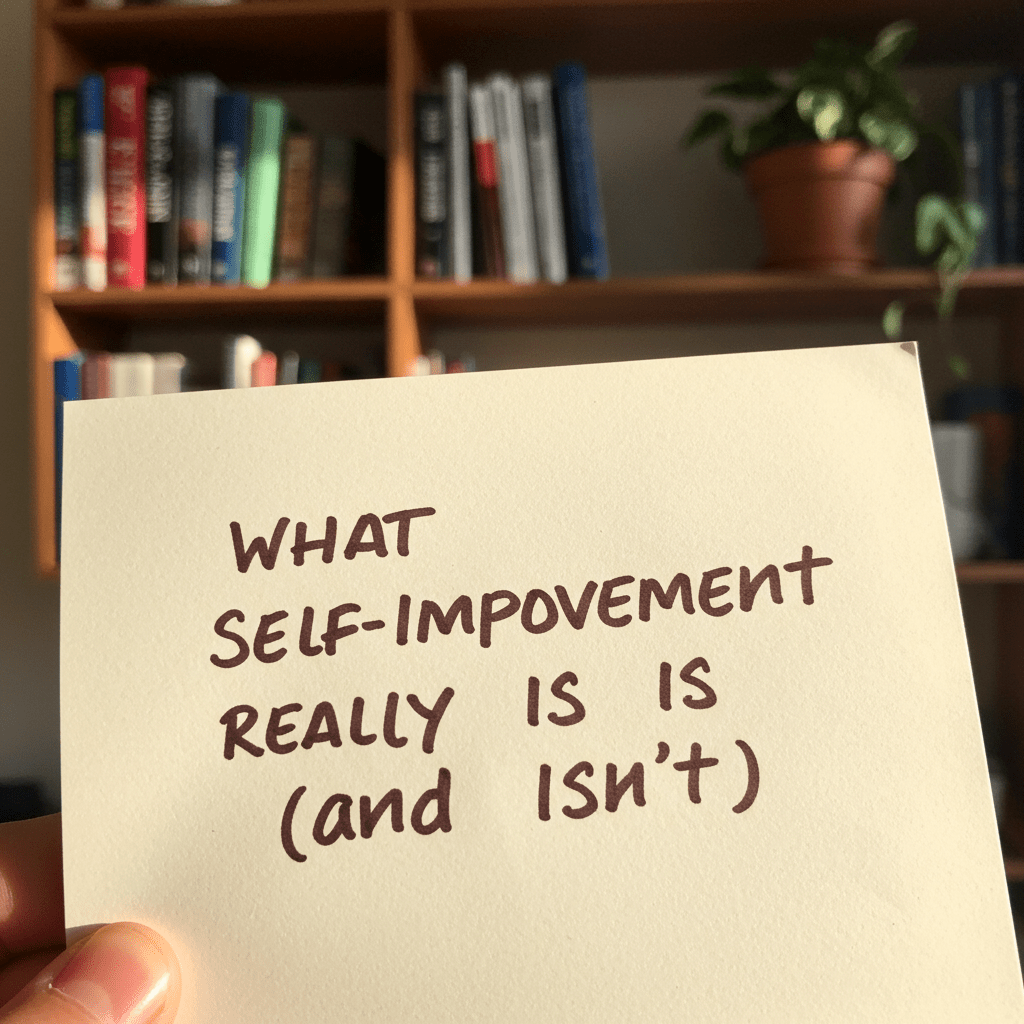 WHAT
SELF-IMPOVEMENT
REALLY IS IS
(and ISn't)